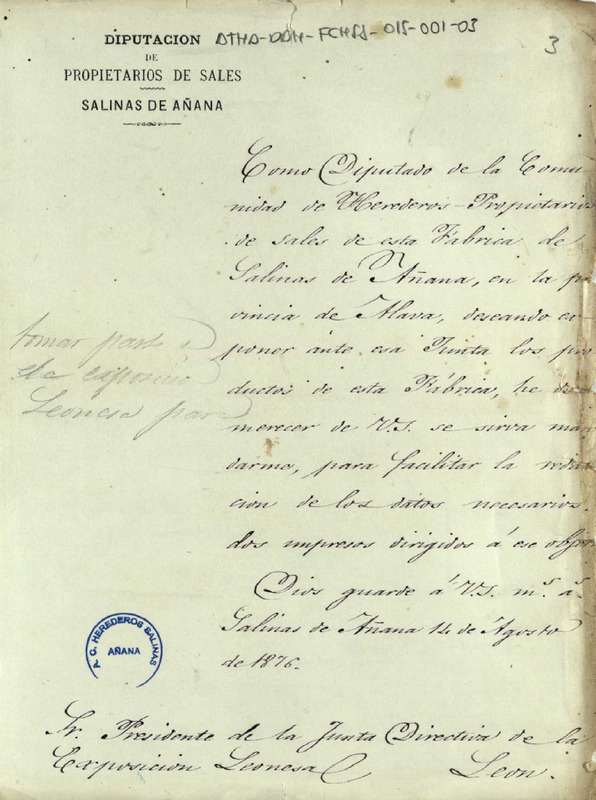 DIPUTACION
DE
PROPIETARIOS DE SALES
SALINAS DE AÑANA
ATHA-DAH-FCHSS-015-001-03
3
Como Diputado de la Comu-
nidad de Herederos-Propietarios
de sales de esta Fábrica de
Salinas de Añana, en la pro
vincia de Alava, deseando ex-
poner ante esa Junta los pro
ductos de esta Fábrica, he de
merecer de V.S. se sirva man
darme, para facilitar la redac
cion de los datos necesarios,
dos impresos dirigidos á ese objeto
Dios guarde á V.S. m.s a.s
Salinas de Añana 14 de Agosto
de 1876.
tomar part
de
Leonesa para
P. C. HEREDEROS SALINAS
AÑANA
Sr. Presidente de la Junta Directiva de la
Exposicion Leonesa Leon.